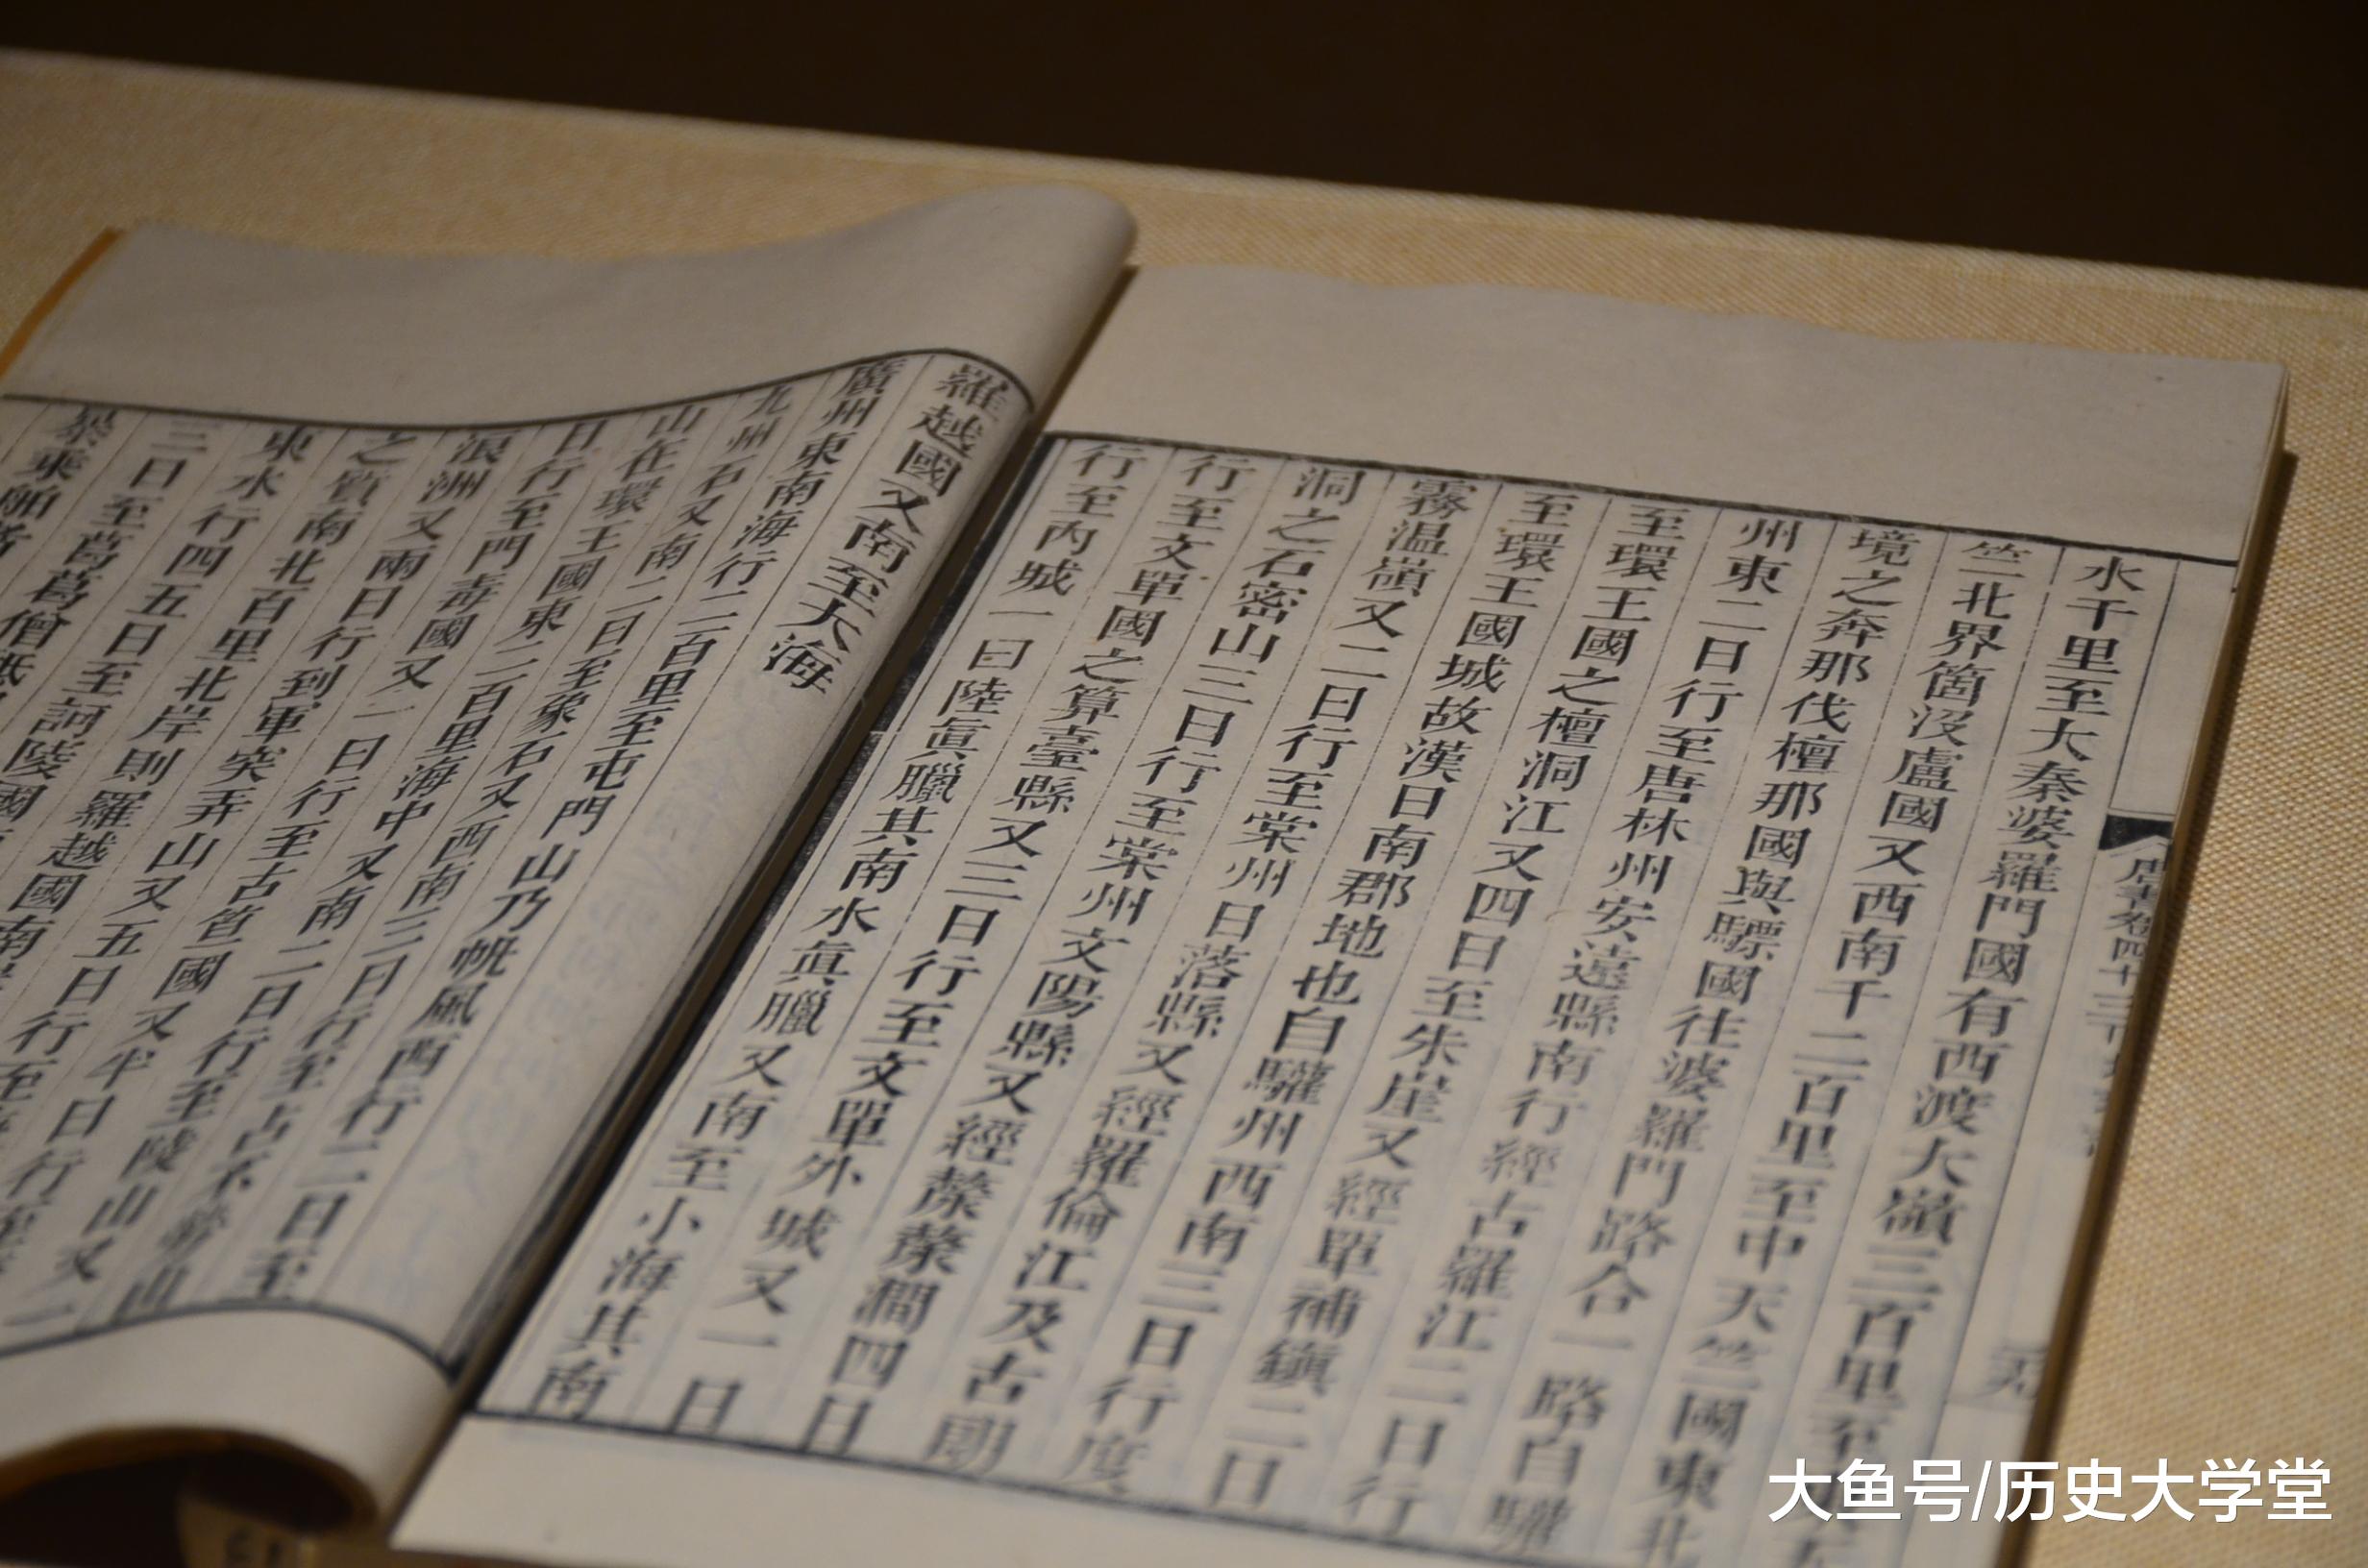 唐書卷四十三
水千里至大秦婆羅門國有西渡大嶺三百里至
竺北界箇沒盧國又西南千二百里至中天竺國東北
境之奔那伐檀那國與驃國往婆羅門路合一路自驩
州東二日行至唐林州安遠縣南行經古羅江二日行
至環王國之檀洞江又四日至朱崖又經單補鎮二日
至環王國城故漢日南郡地也自驩州西南三日行度
霧温嶺又二日行至棠州日落縣又經羅倫江及古朗
洞之石密山三日行至棠州文陽縣又經漦漦澗四日
行至文單國之算臺縣又三日行至文單外城又一日
行至內城一曰陸眞臘其南水眞臘又南至小海其南
羅越國又南至大海
廣州東南海行二百里至屯門山乃帆風西行二日至
九州石又南二日至象石又西南三日行至占不勞山
山在環王國東二百里海中又南二日行至陵山又一
日行至門毒國又一日行至古笪國又半日行
浪洲又兩日行到軍突弄山又五日行至
之質南北百里北岸則羅越國南
東水行四五日至訶陵國
三日至葛葛僧祇
暴乘舶者
大鱼号/历史大学堂